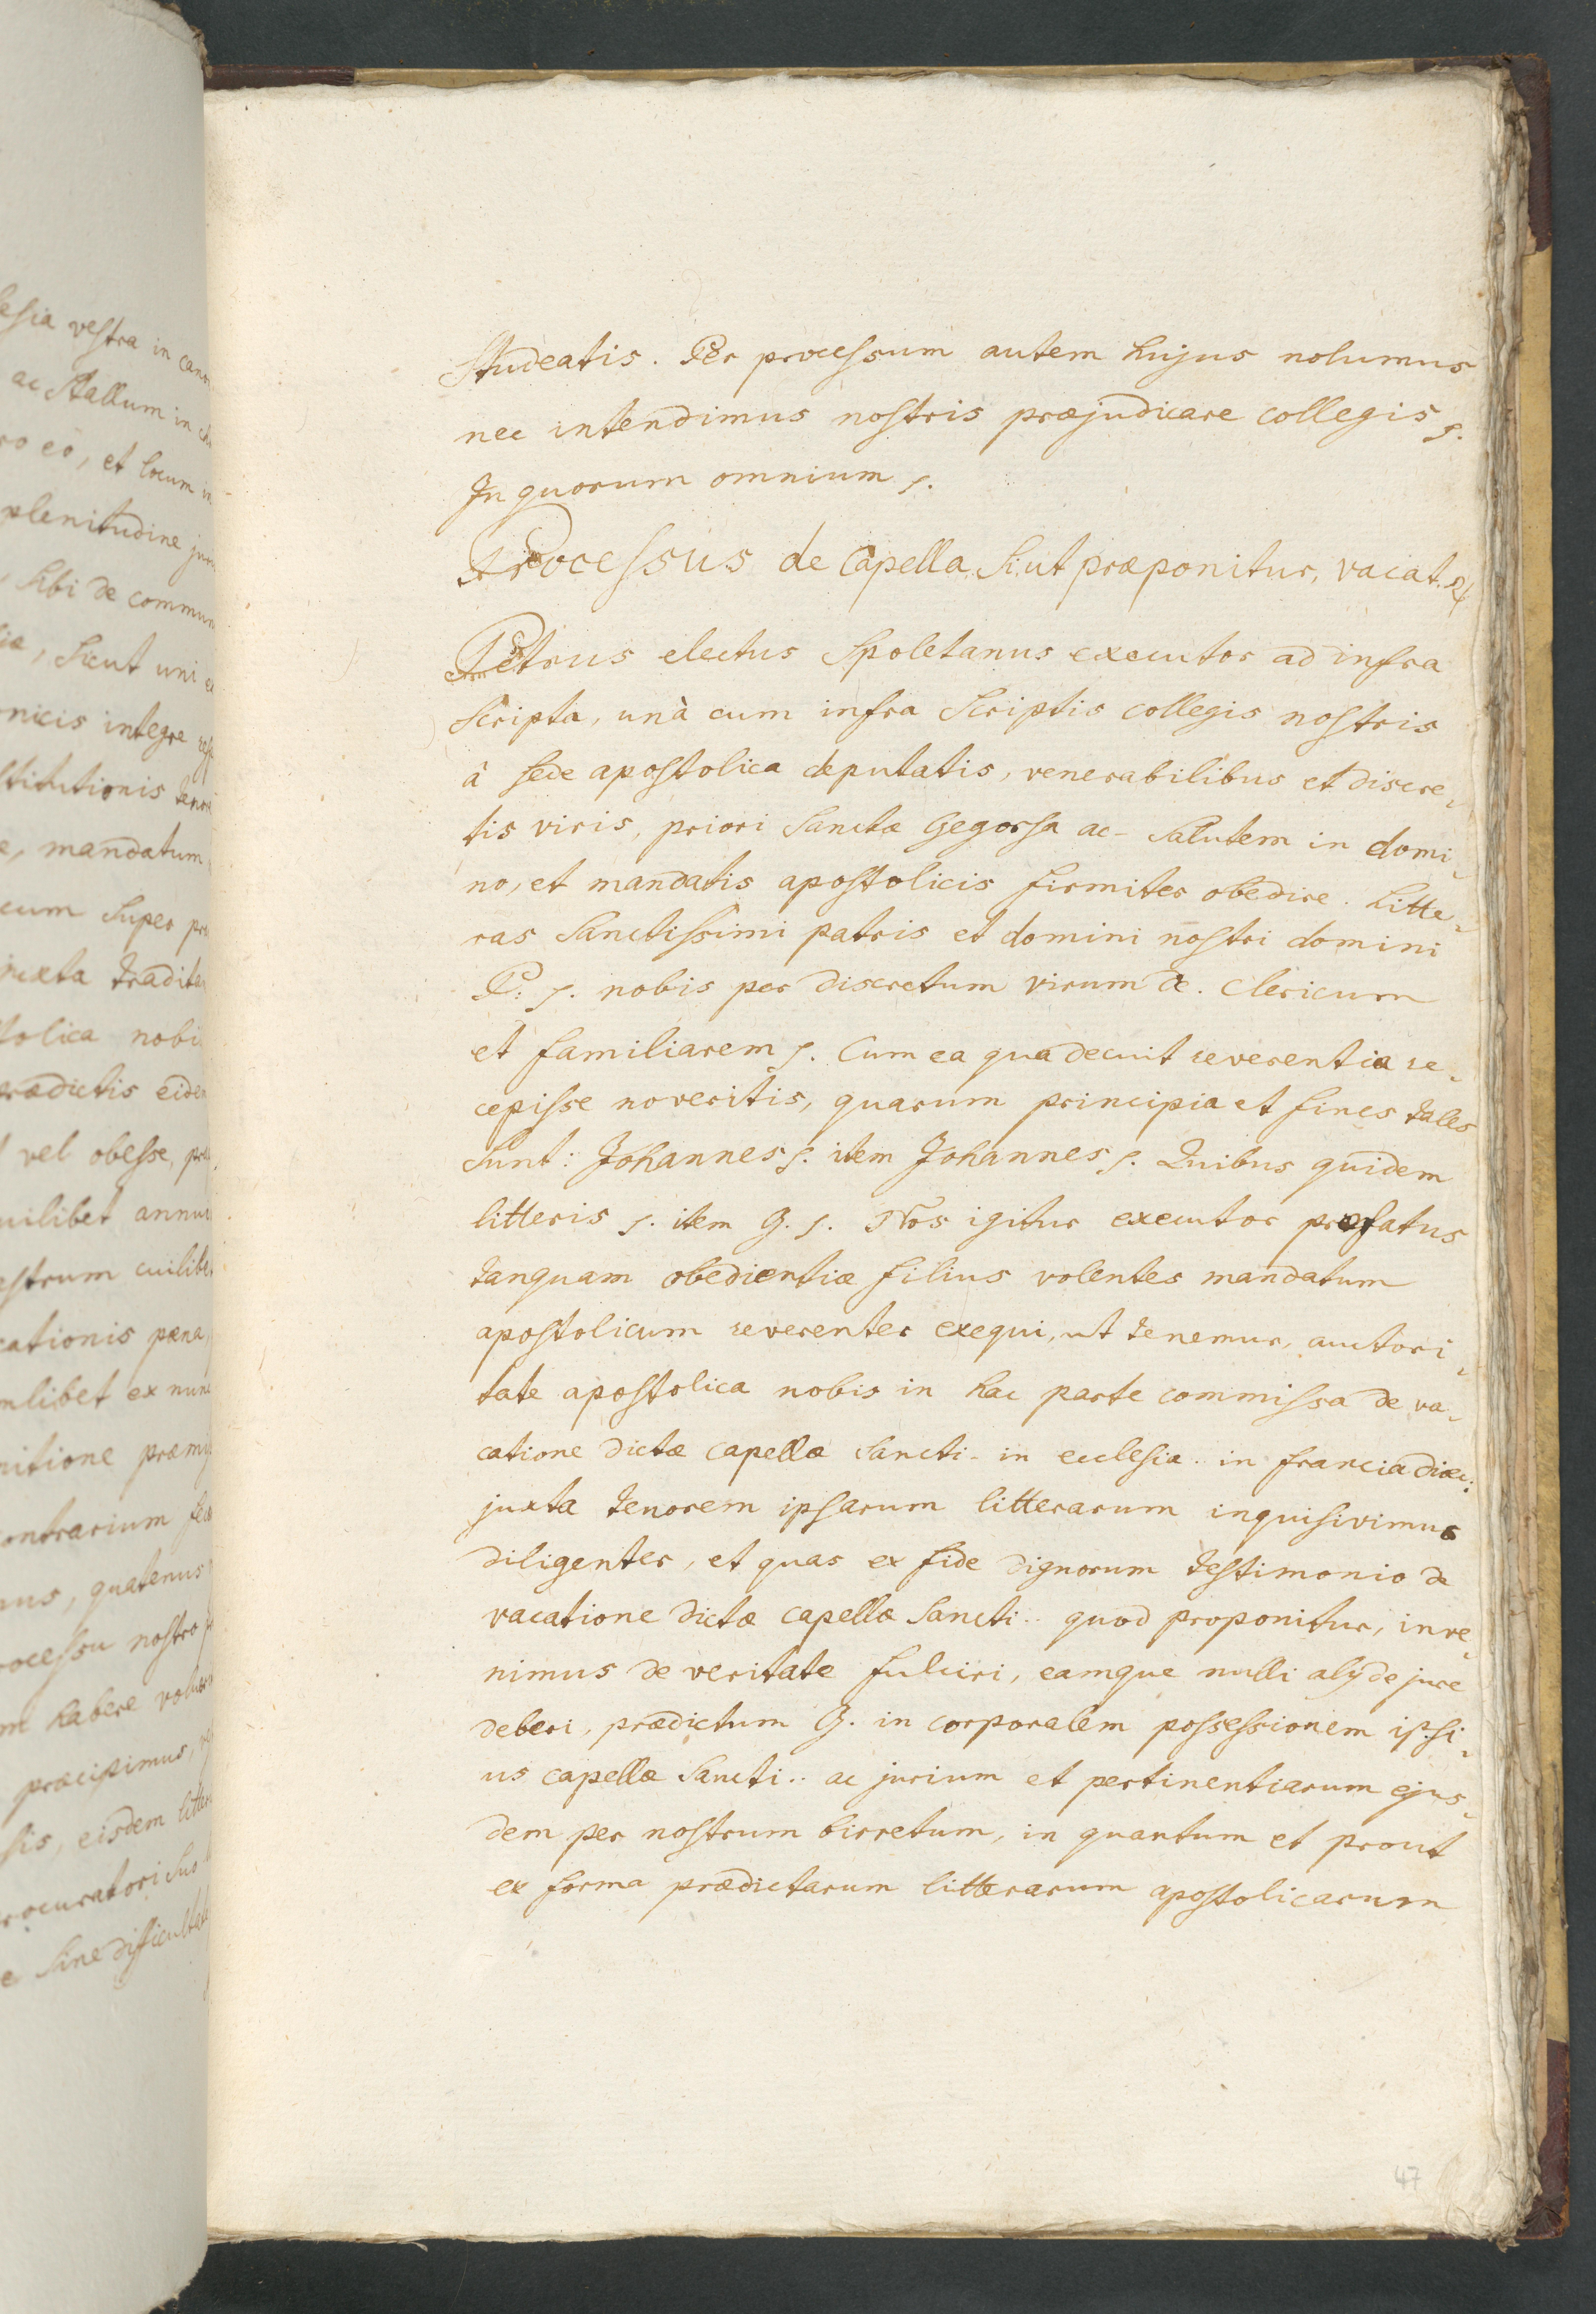 lesia vestra in cano
ac stallum in ch
ro eo, et locum in
plenitudine jur
sibi de commun
ia, sicut uni e
nicis integre
stitutionis teno
e, mandatum
cum super pr
juxta tradita
tolica nobi
prædictis eide
vel obesse, pr
uilibet annu
estrum cuilibe
cationis pæna
mlibet ex nunc
nitione præmi
ontrarium fec
mus, quatenus
rocessu nostro
m habere volu
præcipimus,
sis, eisdem litter
rocuratori suo
e sine difficulta
Studeatis. Per processum autem hujus nolumus
nec intendimus nostris præjudicare collegis s.
In quorum omnium s.
Processus de Capella, sicut præponitur, vacat. 24
Petrus electus Spoletanus executor ad infra
scripta, unà cum infra scriptis collegis nostris
à sede apostolica deputatis, venerabilibus et discre-
tis viris, priori Sanctæ Gegorsa ac- salutem in domi-
no, et mandatis apostolicis firmiter obedire. Litte-
ras Sanctissimi patris et domini nostri domini
P: s. nobis per discretum virum de. clericum
et familiarem s. Cum ea qua decuit reverentia re-
cepisse noveritis, quarum principia et fines tales
sunt: Johannes s. item Johannes s. Quibus quidem
litteris s. item G. s. Nos igitur executor præfatus
tanquam obedientiæ filius volentes mandatum
apostolicum reverenter exequi, ut tenemur, auctori-
tate apostolica nobis in hac parte commissa de va-
catione dictæ capellæ Sancti. in ecclesia .. in francia diæc:
juxta tenorem ipsarum litterarum inquisivimus
diligenter, et quas ex fide dignorum testimonio de
vacatione dictæ capellæ Sancti.. quod proponitur, inve-
nimus de veritate fulciri, eamque nulli alij de jure
deberi, prædictum G. in corporalem possessionem ipsi-
us capellæ Sancti.. ac jurium et pertinentiarum ejus-
dem per nostrum birretum, in quantum et prout
ex forma prædictarum litterarum apostolicarum
47